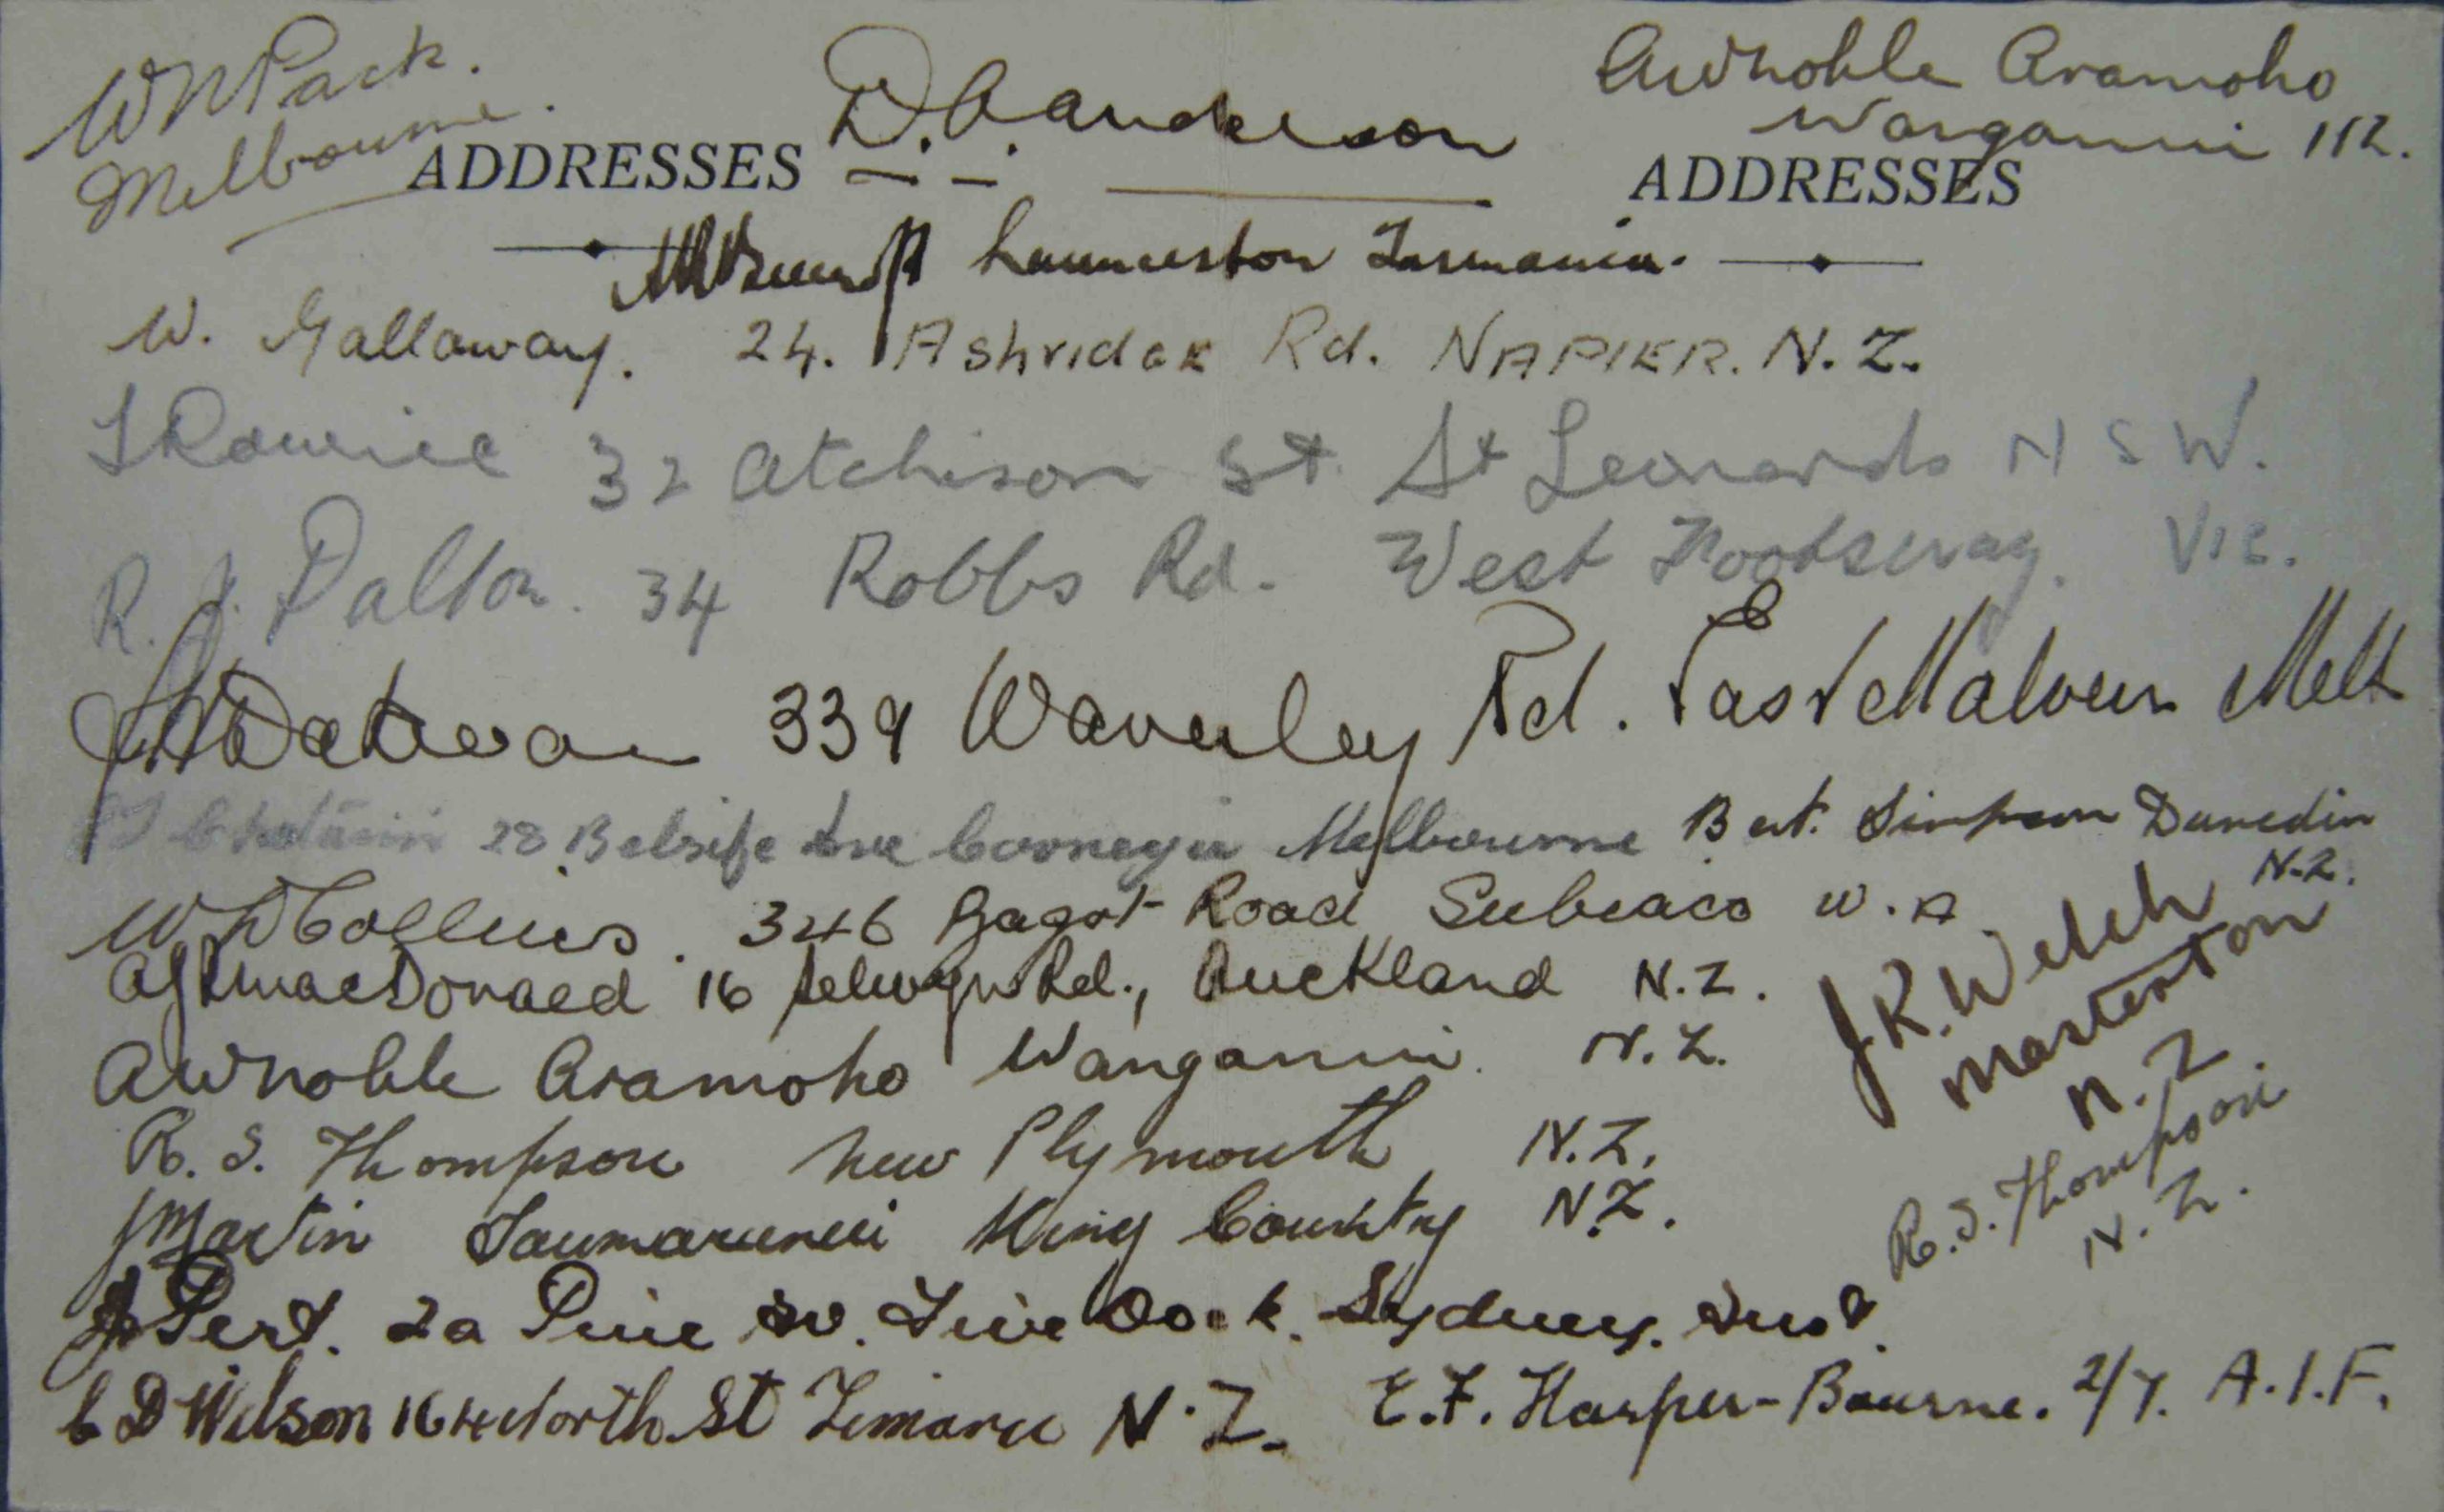 W N Pack.
Melbourne.
D. A. Anderson
AWNoble Aramoho
Wanganui NZ.
ADDRESSES
ADDRESSES
Launceston Tasmania.
W. Gallaway. 24. Ashridge Rd. NAPIER. N.Z.
32 Atchison St St Leonards N S W.
R. J. Dalton. 34 Robbs Rd. West Footscray. Vic.
339 Waverley Rd. East Malvern Melb
28 Ave Carnegie Melbourne
Bert. Simpson Dunedin
N.Z.
W D Collins. 346 Bagot Road Subiaco W.A
MacDonald 16 Selwyn Rd., Auckland N.Z.
J.R. Welch
Masterton
N.Z
AWNoble Aramoho Wanganui. N.Z.
R. S. Thompson New Plymouth N.Z.
R. S. Thompson
N.Z.
J Martin Taumarunui King Country N.Z.
J Pert. 2a Pine Av. Five Dock. Sydney. Aust.
C D Wilson 164 North St Timaru N.Z.
E.F. Harper-Bourne. 2/7. A.I.F.